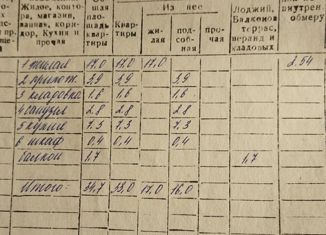 Жилое, конто-
ра, магазин,
ванная, кори-
дор, Кухня и
прочая
площ.
квар-
тиры
Квар-
тиры
Из нее
жи-
лая
под-
соб-
ная
про-
чая
Лоджий,
Балконов
террас,
веранд и
кладовых
внутрен.
обмеру
1 жилая 17,0 17,0 17,0 2.54
2 прихож. 3,9 3,9 3,9
3 кладовка 1,6 1,6 1,6
4 санузел 2,8 2,8 2,8
5 кухня 7,3 7,3 7,3
6 шкаф 0,4 0,4 0,4
балкон 1,7 1,7
Итого- 34,7 33,0 17,0 16,0